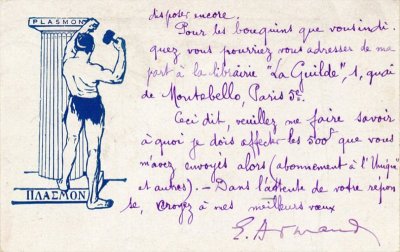 PLASMON
ΠΛΑΣΜΟΝ
disposer encore.
Pour les bouquins que vous indi-
quez vous pourriez vous adresser de ma
part à la librairie "La Guilde", 1, quai
de Montebello, Paris 5e.
Ceci dit, veuillez me faire savoir
à quoi je dois affecter les 500f que vous
m'avez envoyés alors (abonnement à l'Unique
et autres). — Dans l'attente de votre repon
se, croyez à mes meilleurs vœux
E. Armand